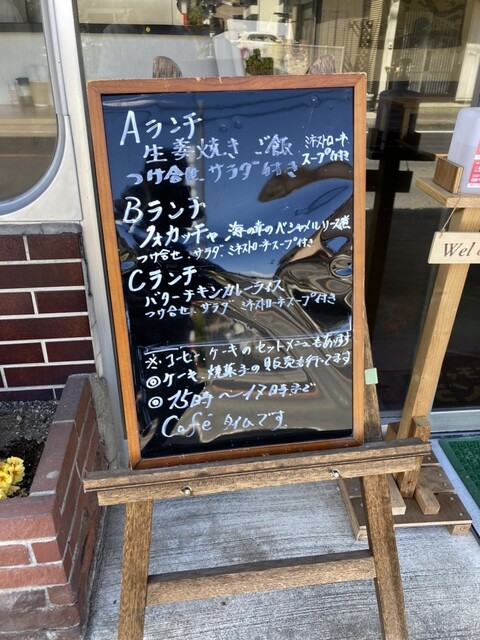 Aランチ
生姜焼き ご飯 ミネストローネ
スープ付き
つけ合せ サラダ付き
Bランチ
フォカッチャ 海の幸のベシャメルソース煮
つけ合せ、サラダ、ミネストローネスープ付き
Cランチ
バターチキンカレーライス
つけ合せ、サラダ ミネストローネスープ付き
※コーヒー、ケーキのセットメニューもあります
◎ケーキ、焼菓子の販売も行ってます
◎15時〜17時まで
Caféタイムです
Wel